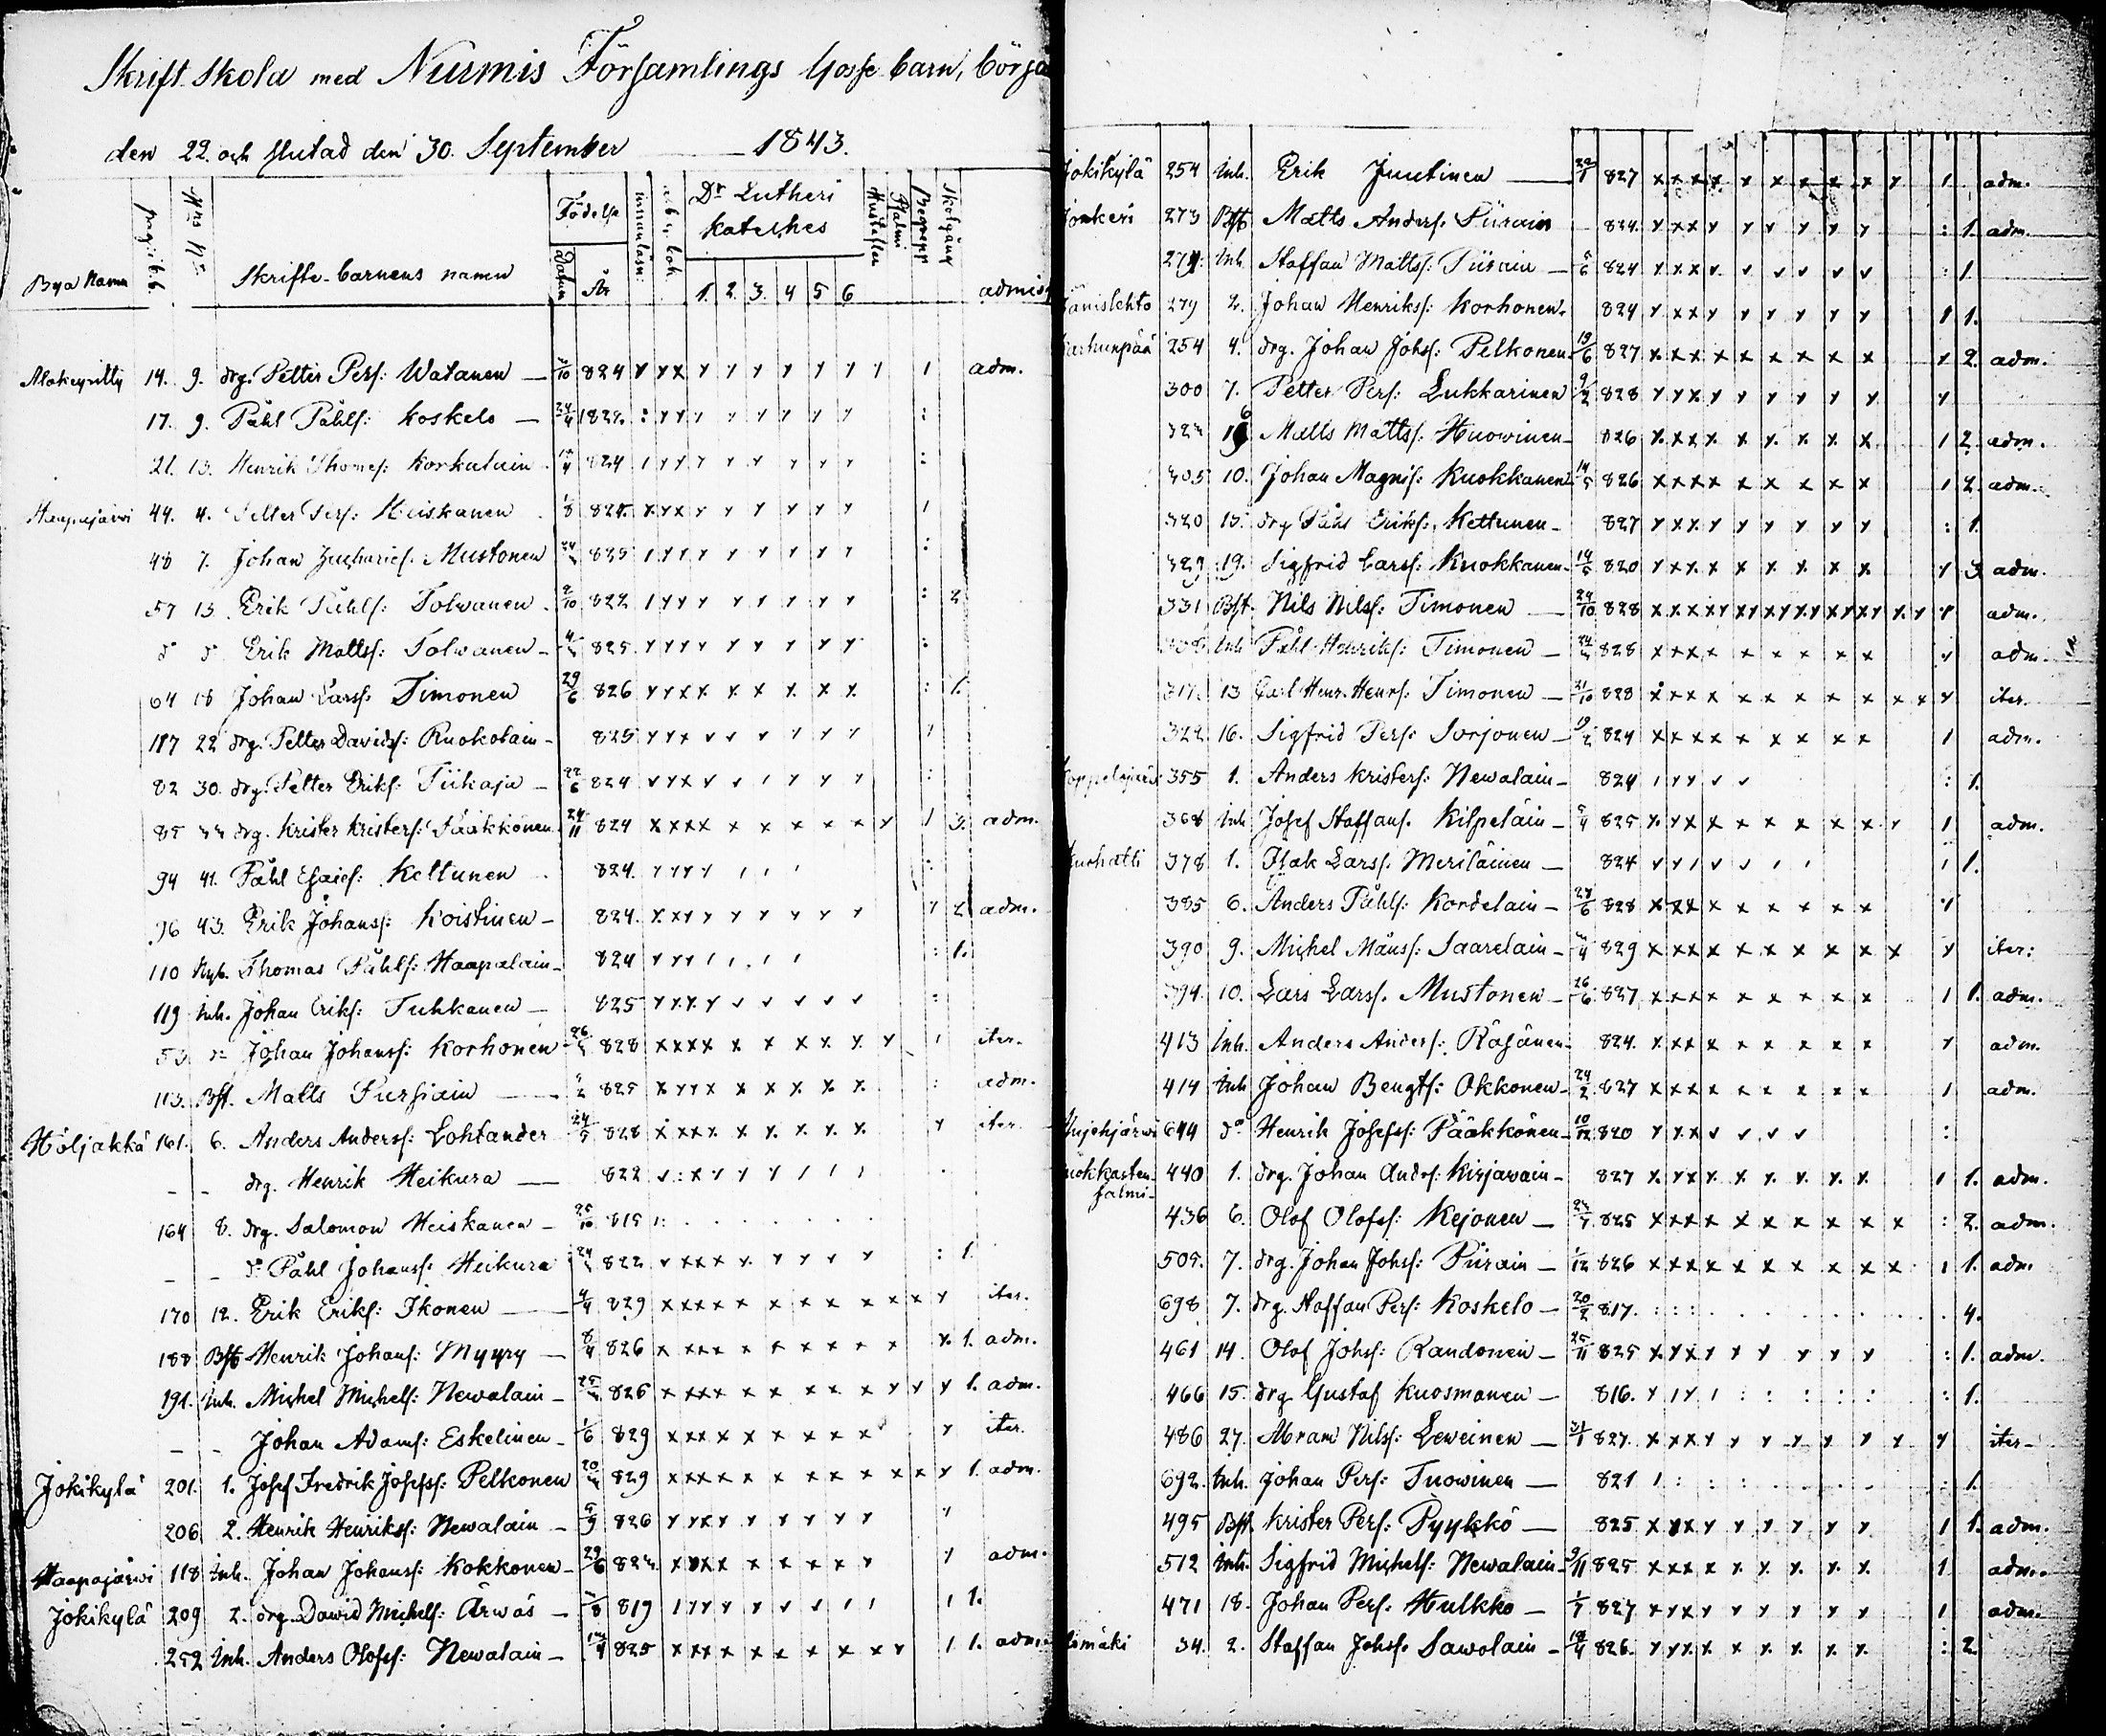 Skrift Skola med Nurmis Församlings Gosse barn, börja
den 22. och slutad den 30. September 1843.
Bya Namn pag. i b. b. Hws No Skrifte-barnens namn Födelse Datum År innanläsn: a b c bok Dr Lutheri kateches 1. 2. 3. 4 5 6 Hustaflor Psalmi Begrepp Skolgång admis
14. 9. drg. Petter Pers: Watanen — 824 adm.
17. 9. Påhl Påhls: Koskelo — 24/4
21. 13. Henrik Thomes: Korkalain 824
Haapajärwi 44. 4. Petter Pers: Heiskanen
48 7. Johan Zacharies: Mustonen 825
57 13. Erik Påhls: Tolwanen 2/10 822 2
Erik Matts: Tolwanen — 825
64 18 Johan Larss: Timonen 29/6 826 1.
22 drg. Petter Davids: Ruokolain — 825
82 30. drg. Petter Eriks: Tiikaja — 22/6 824
85 drg. Krister Kristers: Pääkkönen 24/11 824 3. adm.
94 41. Påhl Esaies: Kettunen 824.
96 43. Erik Johanss: Koistinen — 824. 2 adm.
110 Nyb. Thomas Påhls: Haapalain — 824 1.
119 Inh. Johan Eriks: Tuhkanen — 825
Johan Johanss: Korhonen 828 iter.
113. Bst. Matts Pursiain — 825 adm.
Höljäkkä 161. 6. Anders Anderss: Lohtander 24/5 828 iter
- - drg. Henrik Heikura — 822
164 8. drg. Salomon Heiskanen — 25/10 815
- - d:o Påhl Johanss: Heikura 822 1
170 12. Erik Eriks: Ikonen — 4/4 829 iter.
188 Bst Henrik Johans: Myyry — 8/4 826 1. adm.
191. Inh. Michel Michels: Newalain — 826 1. adm.
- - Johan Adams: Eskelinen — 1/6 829 iter.
Jokikylä 201. 1. Josef Fredrik Josefss: Pelkonen 829 1. adm.
206 2. Henrik Henrikss: Newalain — 5/9 826
Haapajärwi 118 Inh. Johan Johanss: Kokkonen — 29/6 adm.
Jokikylä 209 2. drg. Dawid Michels: Ärwäs — 819 1.
252 Inh. Anders Olofss: Newalain — 825 1. adm.
Jokikylä 254 Inh. Erik Juutinen — 827 adm.
Jonkeri 273 Bst Matts Anders: Piirain 824. 1. adm.
274. Inh Staffan Matts: Piirain — 824 1.
279 2. Johan Henriks: Korhonen. 824 1.
Karhunpää 254 4. drg. Johan Johss: Pelkonen 19/6 827 2. adm.
300 7. Petter Pers: Lukkarinen 9/2 828
Matts Matts: Huowinen — 826 2. adm.
305 10. Johan Magnis: Kuokkanen 14/5 826 2. adm.
320 13. drg Påhl Eriks: Kettunen — 827 1.
329 19. Sigfrid Larss: Kuokkanen — 14/5 820 3 adm.
331 Bst. Nils Nilss: Timonen — 24/10 828 adm.
Inh Påhl Henriks: Timonen — 828 adm.
317. 13 Carl Henr. Henrs: Timonen — 21/10 828 iter.
322 16. Sigfrid Pers: Sorjonen — 824 adm.
355 1. Anders Kristers: Newalain — 824 1.
368 Inh Josef Staffans. Kilpeläin — 5/4 825 adm.
Kuohatti 378 1. Isak Larss. Meriläinen — 824 1.
385 6. Anders Påhls: Kordelain — 828
390 9. Michel Månss: Saarelain — 829 iter:
394. 10. Lars Larss. Mustonen — 26/6 827 1. adm.
413 Inh. Anders Anders: Räsänen — 824. adm.
414 Inh Johan Bengts: Okkonen — 24/2 827 adm.
644 do Henrik Josefss: Pääkkönen — 10/12 820
440 1. drg. Johan Andrs: Kirjawain — 827 1. adm.
salmi-
436 6. Olof Olofss: Kejonen — 825 2. adm.
505. 7. drg. Johan Johss: Piirain — 1/12 826 1. adm.
698 7. drg. Staffan Pers: Koskelo — 20/2 817. 4.
461 14. Olof Johss: Randonen — 25/11 825 1. adm.
466 15. drg Gustaf Kuosmanen — 816. 1.
486 27. Abram Nilss: Leweinen — 31/1 827. iter —
692. Inh. Johan Pers: Tuowinen — 821 1.
495 Bst. Krister Pers: Pyykkö — 825 1. adm.
512 Inh. Sigfrid Michels: Newalain — 9/11 825 adm.
471 18. Johan Pers: Hulkko — 1/7 827 adm.
34. 2. Staffan Johss. Sawolain — 826. 2